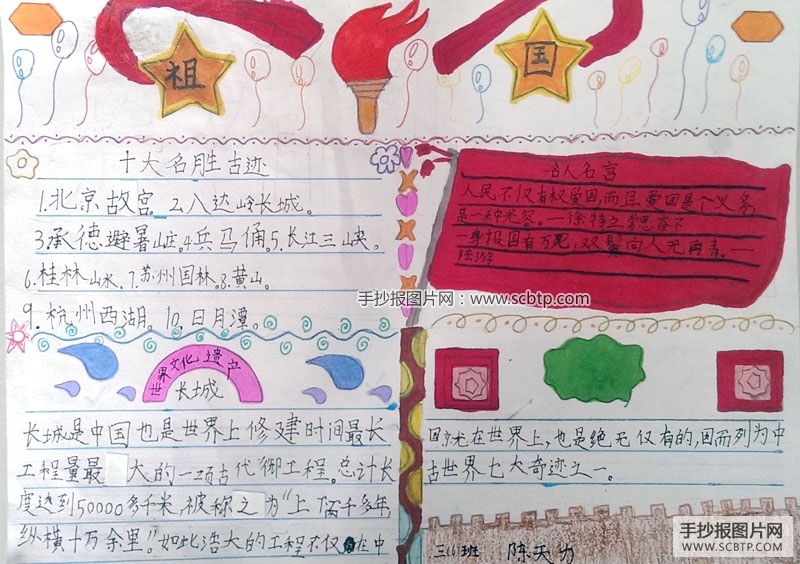 祖
国
十大名胜古迹
1.北京故宫 2.八达岭长城。
3.承德避暑山庄。4.兵马俑。5.长江三峡。
6.桂林山水。7.苏州园林。8.黄山。
9.杭州西湖。10.日月潭。
名人名言
人民不仅有权爱国,而且爱国是个义务,
是一种光容。—徐特立
一身报国有万死,双鬓向人无再青。—
陆游
手抄报图片网:www.scbtp.com
世界文化遗产
长城
长城是中国也是世界上修建时间最长
工程量最 大的一项古代 御工程。总计长
度达到50000多千米,被称之为“上下两千多年,
纵横十万余里。”如此浩大的工程不仅在中
国就在世界上,也是绝无仅有的,因而列为中
古世界七大奇迹之一。
三(6)班 陈天力
手抄报图片网
WWW.SCBTP.COM